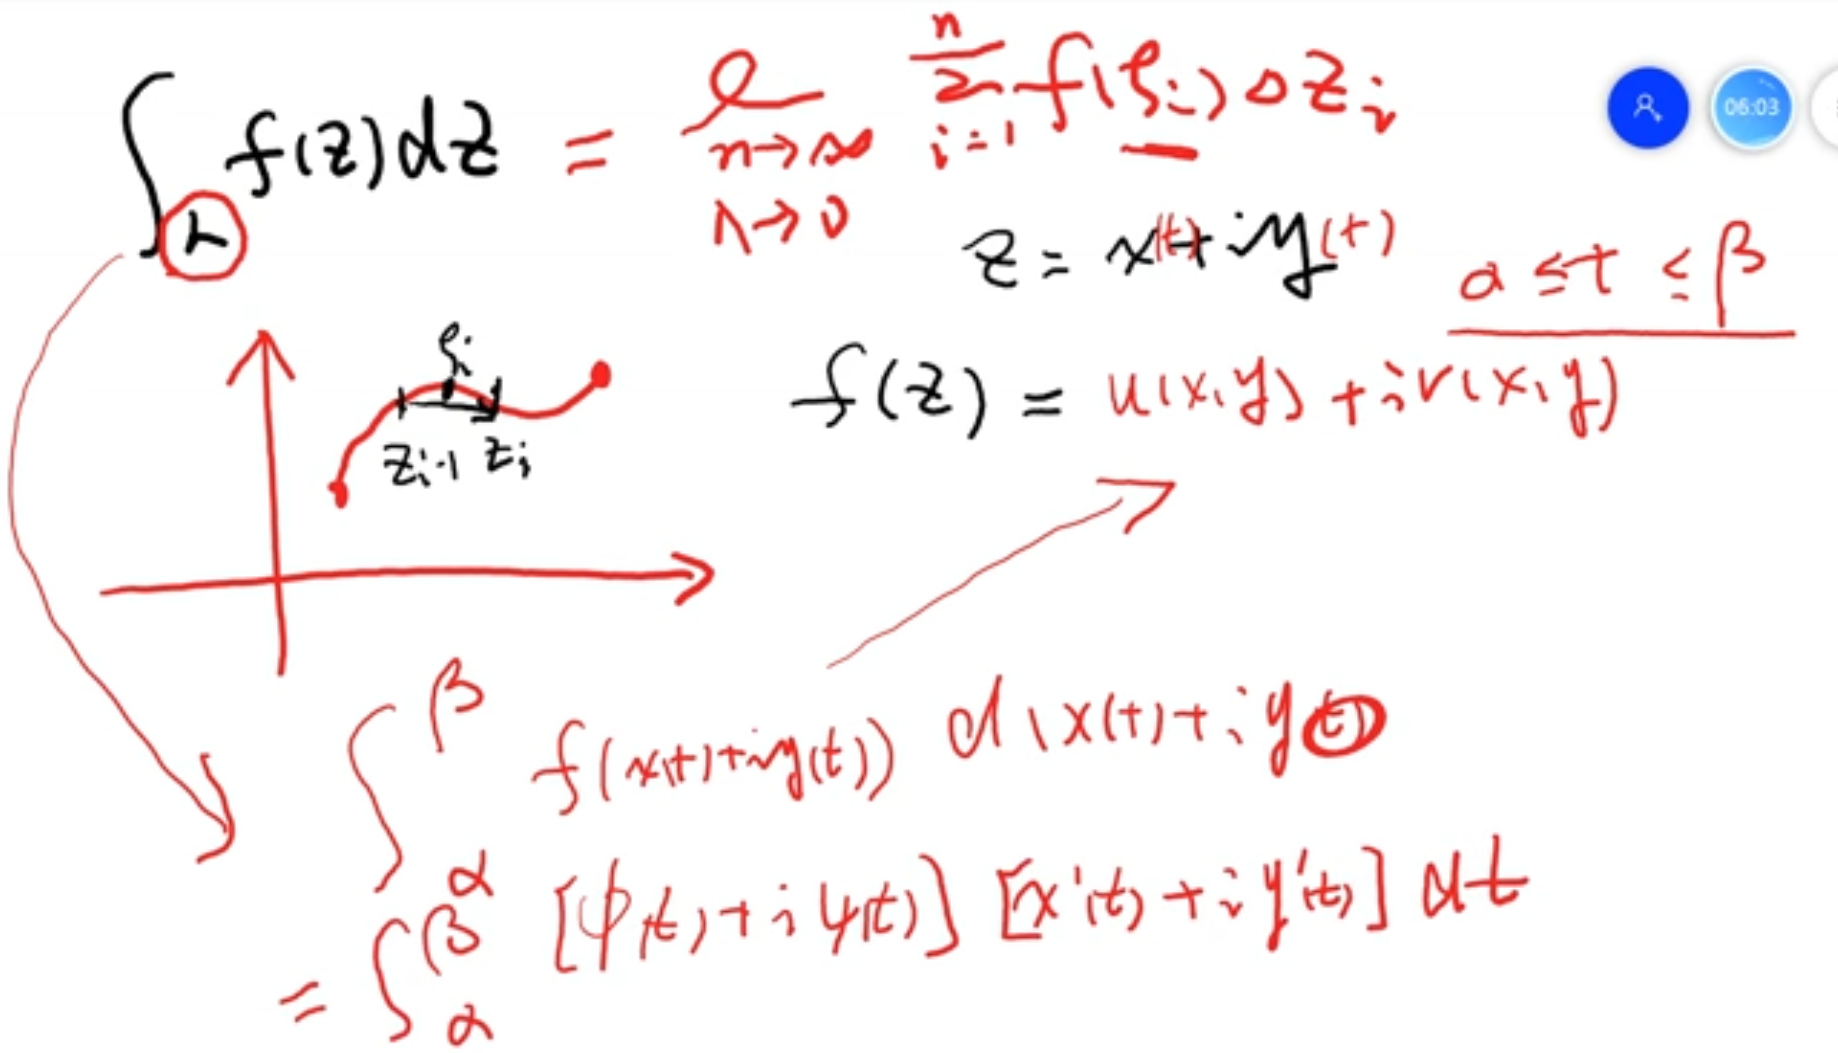 ∫_L f(z)dz = l n→∞ λ→0 n Σ i=1 f(ξi) Δzi
06:03
z = x(t) + iy(t) α ≤ t ≤ β
f(z) = u(x,y) + iv(x,y)
ξi
zi-1 zi
∫_α^β f(x(t)+iy(t)) d(x(t)+iy(t))
= ∫_α^β [φ(t)+iψ(t)] [x'(t)+iy'(t)] dt